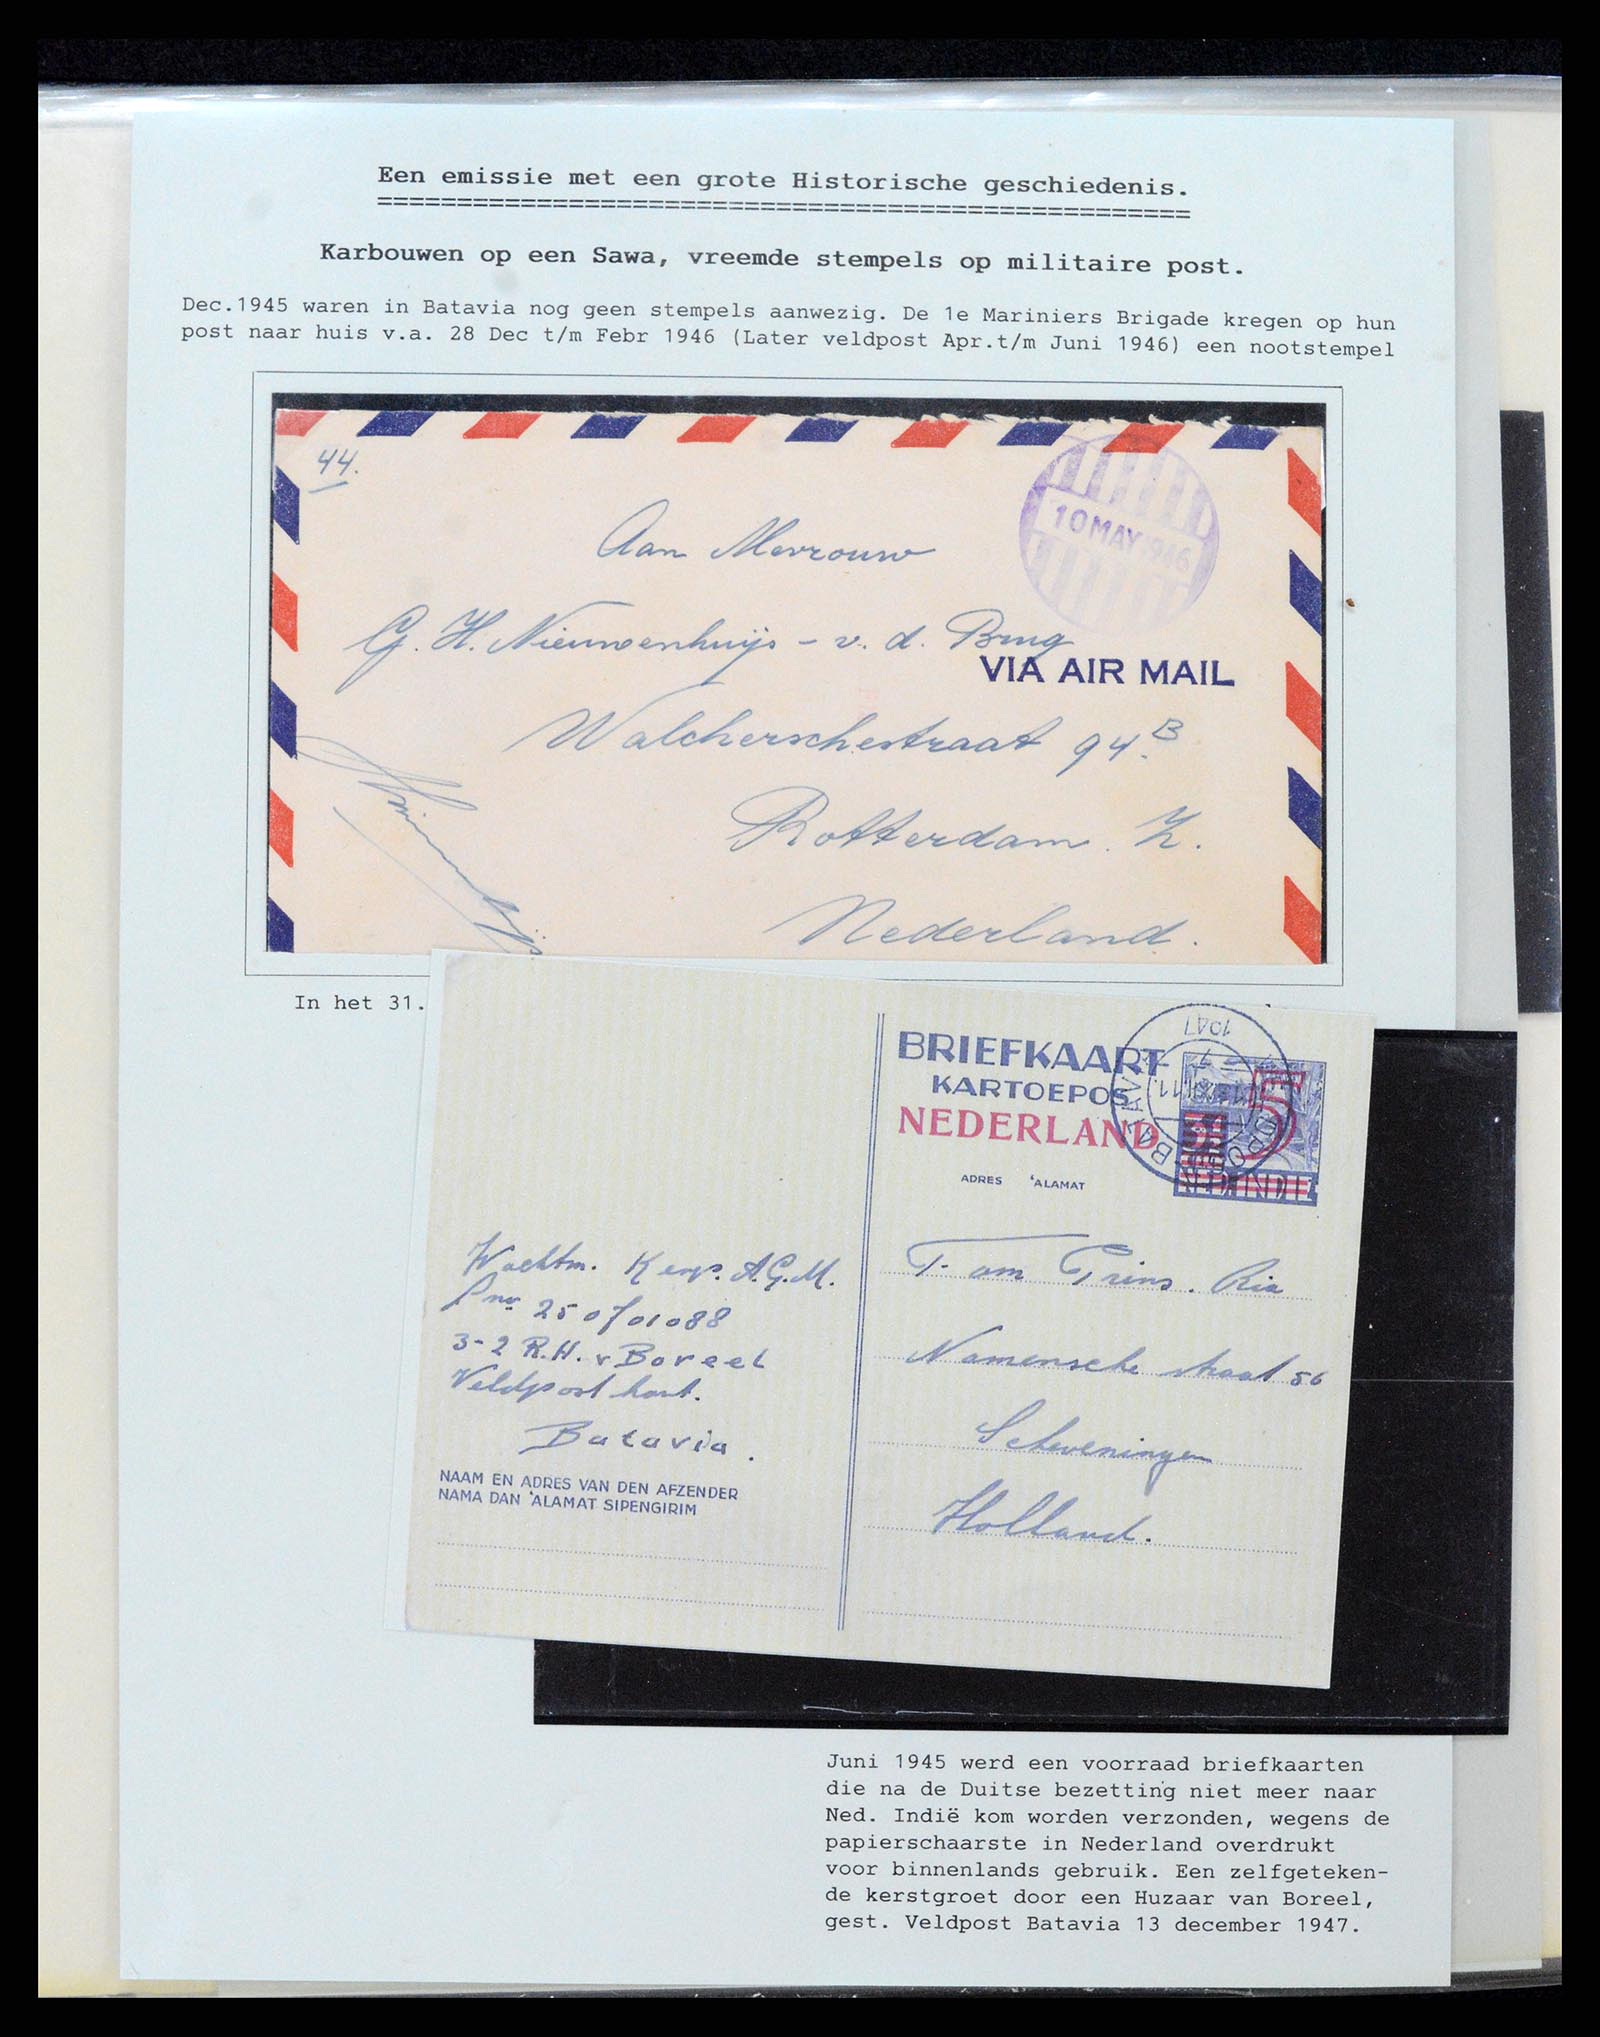 Een emissie met een grote Historische geschiedenis.
===================================================
Karbouwen op een Sawa, vreemde stempels op militaire post.
Dec.1945 waren in Batavia nog geen stempels aanwezig. De 1e Mariniers Brigade kregen op hun
post naar huis v.a. 28 Dec t/m Febr 1946 (Later veldpost Apr.t/m Juni 1946) een nootstempel
44.
10 MAY 1946
Aan Mevrouw
G. H. Nieuwenhuijs - v. d. Brug
VIA AIR MAIL
Walcherschestraat 94 B
Rotterdam. Z.
Nederland.
In het 31.
BRIEFKAART
KARTOEPOS
NEDERLAND
5
BATAVIA
1947
NED. INDIE
ADRES 'ALAMAT
Wachtm. A.G.M.
250701088
3-2 R.H. v Boreel
Veldpost kant.
Batavia.
NAAM EN ADRES VAN DEN AFZENDER
NAMA DAN 'ALAMAT SIPENGIRIM
Prins. Ria
Namensche straat 56
Scheveningen
Holland.
Juni 1945 werd een voorraad briefkaarten
die na de Duitse bezetting niet meer naar
Ned. Indië kom worden verzonden, wegens de
papierschaarste in Nederland overdrukt
voor binnenlands gebruik. Een zelfgeteken-
de kerstgroet door een Huzaar van Boreel,
gest. Veldpost Batavia 13 december 1947.